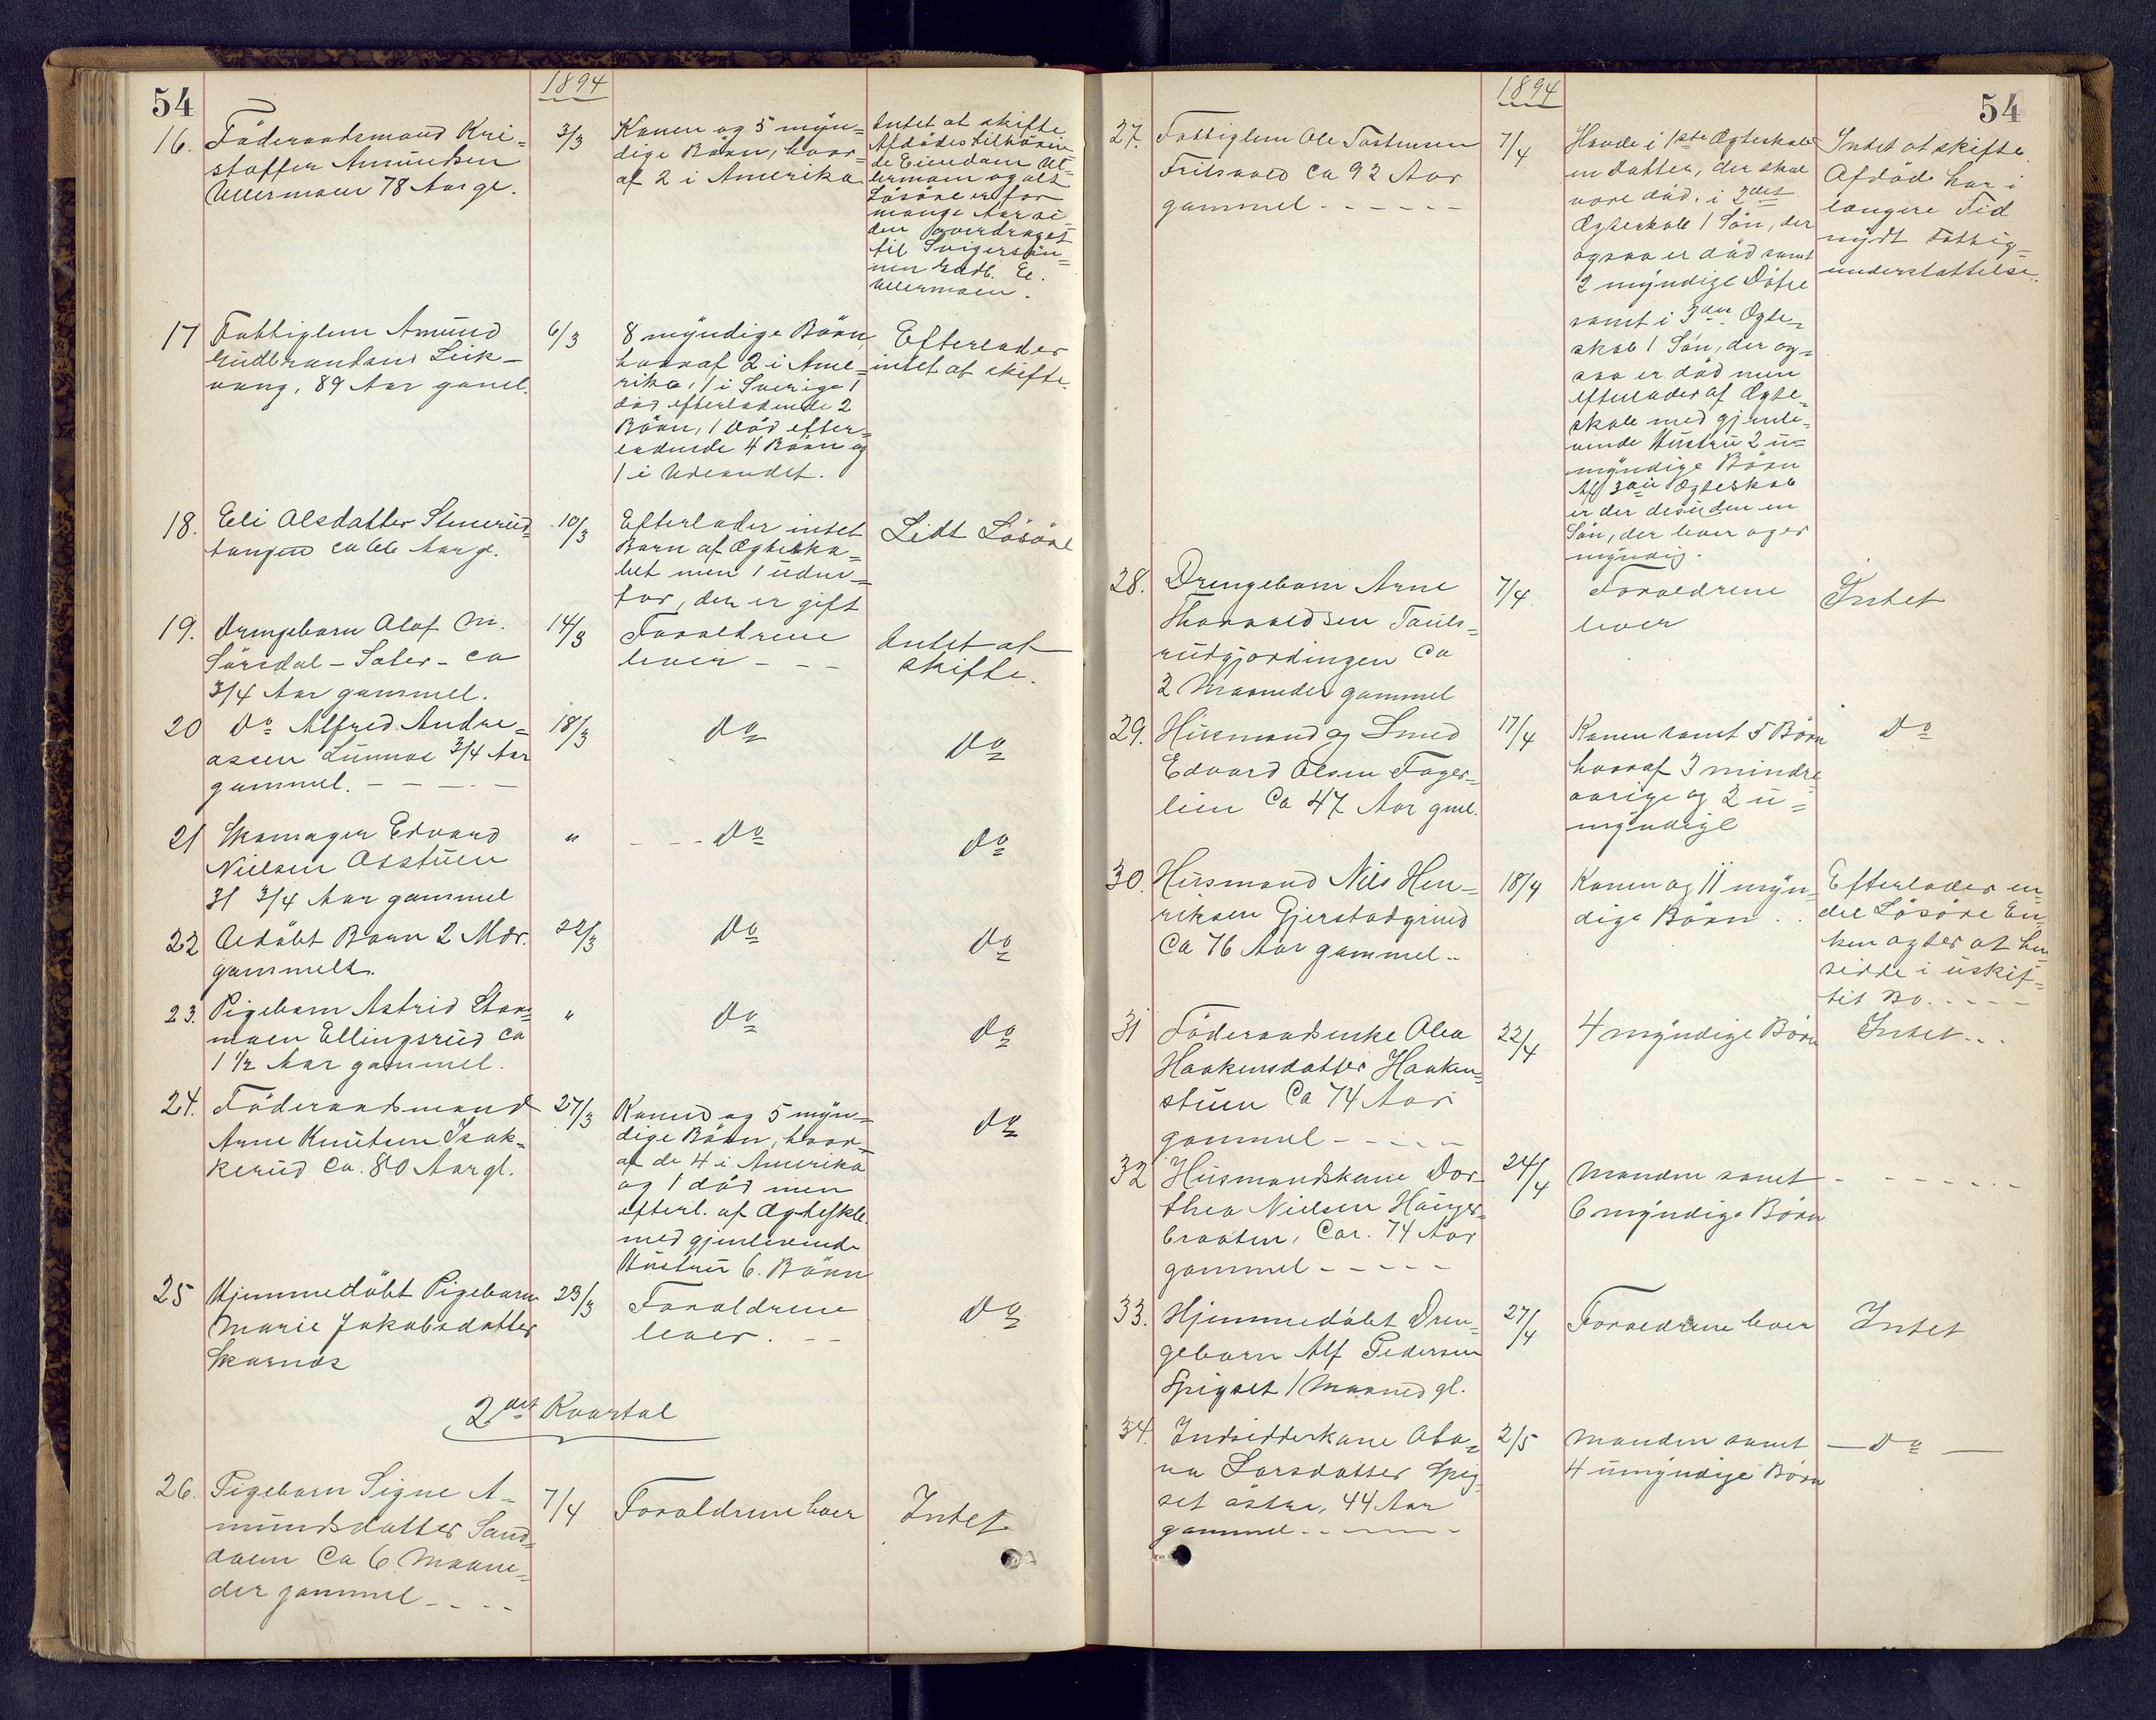 54
1894
16. Föderaadsmand Kri=
stoffer Amundsen
Ullermoen 78 Aar gl.
3/3
Konen og 5 myn=
dige Börn, hvor=
af 2 i Amerika
Intet at skifte
Afdödes tilhörin=
de Eiendom Ul=
lermoen og alt
Lösöre er for
mange Aar si=
den overdraget
til Svigersön=
nen Gudb. El.
Ullermoen.
17 Fattiglem Amund
Gudbrandsen Leik-
vang, 89 Aar gamel.
6/3
8 myndige Börn,
hvoraf 2 i Ame=
rika, 1 i Sverige 1
död efterladende 2
Börn, 1 död efter=
ladende 4 Börn og
1 i Udlandet.
Efterlader
intet at skifte.
18. Eli Olsdatter Stuerud=
tangen ca 66 Aar gl.
10/3
Efterlader intet
Barn af Ægteska=
bet men 1 uden=
for, der er gift
Lidt Lösöre
19. Drengebarn Olaf M.
Sörsdal - Soler - ca
3/4 Aar gammel.
14/3
Forældrene
lever - - -
Intet at
skifte.
20 Do Alfred Andre=
asen Lunnoe 3/4 Aar
gammel. - - - -
18/3
Do
Do
21 Skomager Edvard
Nielsen Aasstuen
31 3/4 Aar gammel
"
- - - Do
Do
22 Udöbt Barn 2 Mdr.
gammelt.
22/3
Do
Do
23. Pigebarn Astrid Stor=
moen Ellingsrud ca
1 1/2 Aar gammel.
"
Do
Do
24. Föderaadsmand
Arne Knutsen Isak=
kerud Ca. 80 Aar gl.
27/3
Konen og 5 myn=
dige Börn, hvor=
af de 4 i Amerika
og 1 död men
efterl. af Ægteskb.
med gjenlevende
Hustru 6. Börn
Do
25 Hjemmedöbt Pigebarn
Marie Jakobsdatter
Skarnæs
23/3
Forældrene
lever. - -
Do
2det Kvartal
26. Pigebarn Signe A-
mundsdatter Sand=
dalen Ca 6 Maane=
der gammel - - - -
7/4
Forældrene lever
Intet
1894
54
27. Fattiglem Ole Tostensen
Frilsvold Ca 92 Aar
gammel - - - - - -
7/4
Havde i 1ste Ægteskab
en Datter, der skal
være död. i 2det
Ægteskab 1 Sön, der
ogsaa er död samt
2 myndige Dötre
samt i 3die Ægte=
skab 1 Sön, der og=
saa er död men
efterlader af Ægte=
skab med gjenle=
vende Hustru 2 u=
myndige Börn
Af 3die Ægteskab
er der desuden en
Sön, der lever og er
myndig.
Intet at skifte.
Afdöde har i
længere Tid
nydt Fattig=
understøttelse.
28. Drengebarn Arne
Thorvaldsen Tauls=
rudgjordingen Ca
2 Maaneder gammel
7/4
Forældrene
lever
Intet
29. Husmand og Smed
Edvard Olsen Fager=
lien Ca 47 Aar gml.
17/4
Konen samt 5 Börn
hvoraf 3 mindre=
aarige og 2 u=
myndige
Do
30. Husmand Nils Hen-
riksen Gjerstadgrind
Ca 76 Aar gammel..
18/4
Konen og 11 myn=
dige Börn . .
Efterlader en
del Lösöre En=
ken agter at hen
sidde i uskif=
tet Bo. - - - -
31 Föderaadsenke Olea
Haakensdatter Haaken=
stuen Ca 74 Aar
gammel - - - - -
22/4
4 myndige Börn
Intet...
32 Husmandskone Dor=
thea Nielsen Hauger=
braaten, Ca. 74 Aar
gammel - - - - -
24/4
Manden samt
6 myndige Börn
- - - - - - -
33. Hjemmedöbt Dren=
gebarn Alf Pedersen
Spigset 1 Maaned gl.
27/4
Forældrene lever
Intet
34. Indsidderkone Ola=
va Larsdatter Spig=
set östre, 44 Aar
gammel - - - - -
2/5
Manden samt
4 umyndige Börn
- Do -